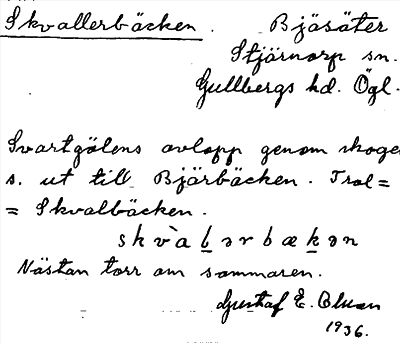 Skvallerbäcken. Bjäsäter
Stjärnorp sn.
Gullbergs hd. Ögl.
Svartgölens avlopp genom skoge
s. ut till Bjärbäcken. Trol=
= Skvalbäcken.
skvàḻərbæḵən
Nästan torr om sommaren.
Gustaf E.
1936.